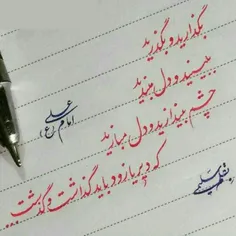 بگذارید و بگذرید
ببینید و دل نبندید
چشم بیندازید و دل مبازید
که دیر یا زود باید گذاشت و گذشت...
امام علی (ع)